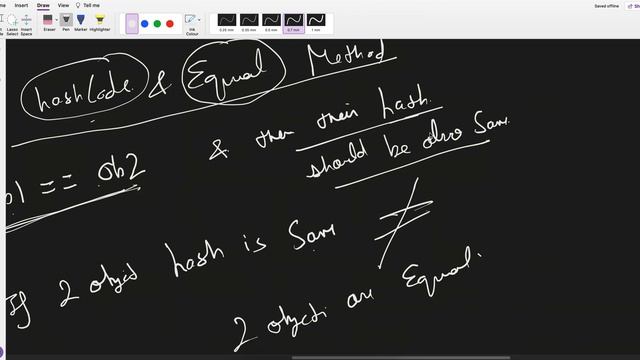 Draw Tell me
Saved offline
Share
Lasso Select
Insert Space
Eraser
Pen
Marker
Highlighter
Ink Colour
0.25 mm
0.35 mm
0.5 mm
0.7 mm
1 mm
hashCode & Equal Method
ob1 == ob2 & then their hash
should be also same
If 2 object hash is Same ≠
2 objects are Equal.